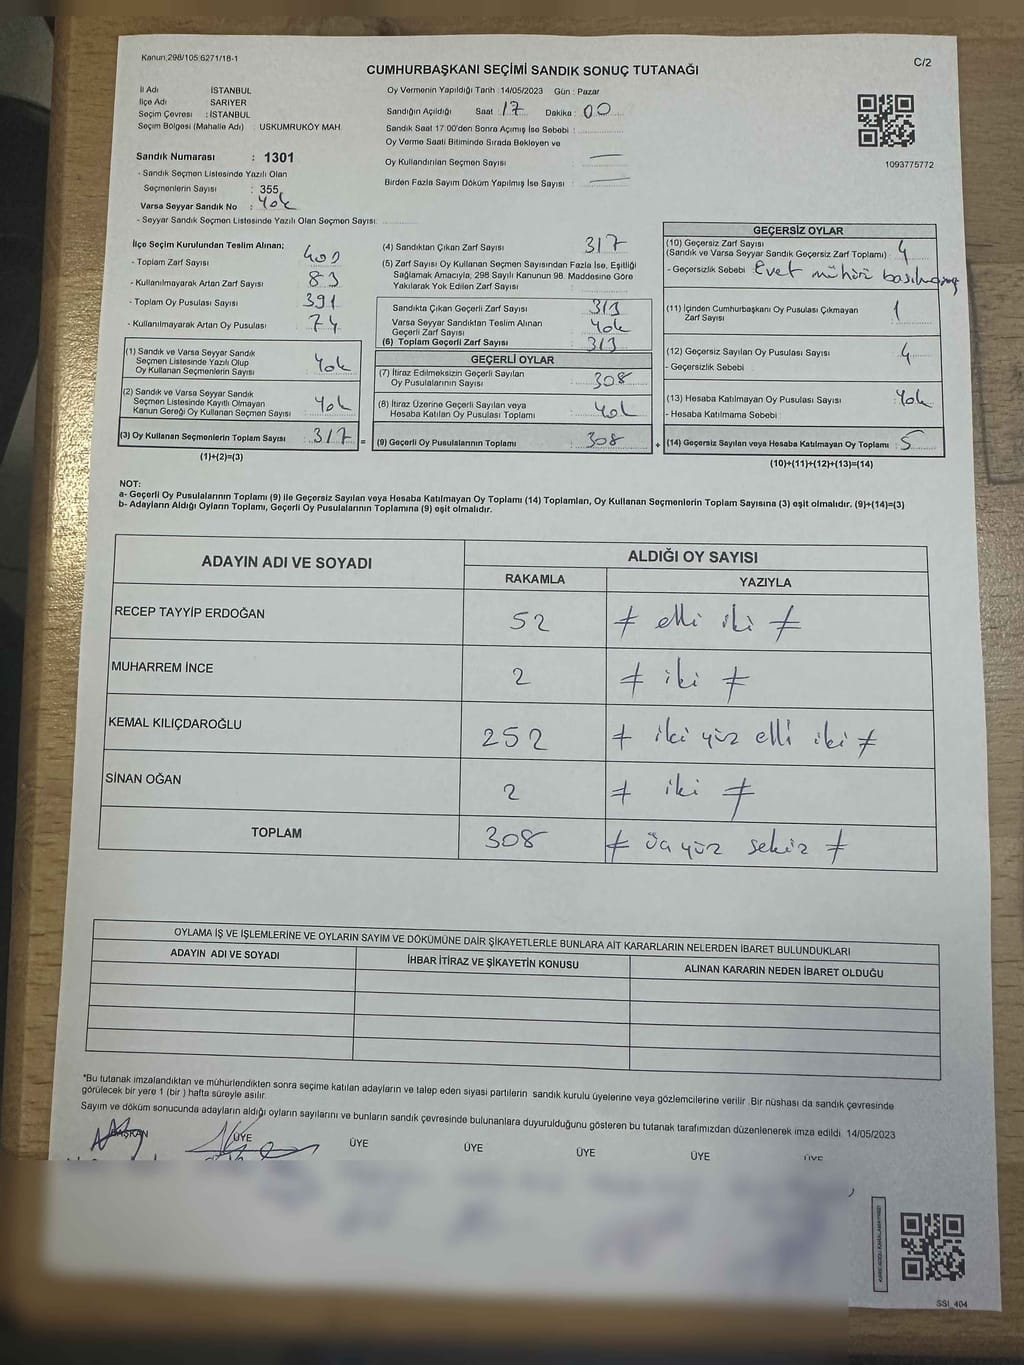 Kanun.298/105.6271/18-1
C/2
CUMHURBAŞKANI SEÇİMİ SANDIK SONUÇ TUTANAĞI
İl Adı İSTANBUL
İlçe Adı SARIYER
Seçim Çevresi : İSTANBUL
Seçim Bölgesi (Mahalle Adı) : USKUMRUKÖY MAH.
Sandık Numarası : 1301
- Sandık Seçmen Listesinde Yazılı Olan
Seçmenlerin Sayısı : 355
Varsa Seyyar Sandık No : Yok
- Seyyar Sandık Seçmen Listesinde Yazılı Olan Seçmen Sayısı:
Oy Vermenin Yapıldığı Tarih : 14/05/2023 Gün : Pazar
Sandığın Açıldığı Saat 17 Dakika : 00
Sandık Saat 17:00'den Sonra Açımış İse Sebebi :
Oy Verme Saati Bitiminde Sırada Bekleyen ve
Oy Kullandırılan Seçmen Sayısı :
Birden Fazla Sayım Döküm Yapılmış İse Sayısı :
1093775772
İlçe Seçim Kurulundan Teslim Alınan;
- Toplam Zarf Sayısı
- Kullanılmayarak Artan Zarf Sayısı : 83
- Toplam Oy Pusulası Sayısı : 391
- Kullanılmayarak Artan Oy Pusulası : 74
(1) Sandık ve Varsa Seyyar Sandık
Seçmen Listesinde Yazılı Olup
Oy Kullanan Seçmenlerin Sayısı : Yok
(2) Sandık ve Varsa Seyyar Sandık
Seçmen Listesinde Kayıtlı Olmayan
Kanun Gereği Oy Kullanan Seçmen Sayısı : Yok
(3) Oy Kullanan Seçmenlerin Toplam Sayısı : 317 =
(1)+(2)=(3)
(4) Sandıktan Çıkan Zarf Sayısı : 317
(5) Zarf Sayısı Oy Kullanan Seçmen Sayısından Fazla İse, Eşitliği
Sağlamak Amacıyla, 298 Sayılı Kanunun 98. Maddesine Göre
Yakılarak Yok Edilen Zarf Sayısı :
Sandıkta Çıkan Geçerli Zarf Sayısı : 313
Varsa Seyyar Sandıktan Teslim Alınan
Geçerli Zarf Sayısı : Yok
(6) Toplam Geçerli Zarf Sayısı : 313
GEÇERLİ OYLAR
(7) İtiraz Edilmeksizin Geçerli Sayılan
Oy Pusulalarının Sayısı : 308
(8) İtiraz Üzerine Geçerli Sayılan veya
Hesaba Katılan Oy Pusulası Toplamı : Yok
(9) Geçerli Oy Pusulalarının Toplamı : 308 +
GEÇERSİZ OYLAR
(10) Geçersiz Zarf Sayısı
(Sandık ve Varsa Seyyar Sandık Geçersiz Zarf Toplamı) : 4
- Geçersizlik Sebebi : Evet mührü
(11) İçinden Cumhurbaşkanı Oy Pusulası Çıkmayan
Zarf Sayısı : 1
(12) Geçersiz Sayılan Oy Pusulası Sayısı : 4
- Geçersizlik Sebebi
(13) Hesaba Katılmayan Oy Pusulası Sayısı : Yok
- Hesaba Katılmama Sebebi
(14) Geçersiz Sayılan veya Hesaba Katılmayan Oy Toplamı : 5
(10)+(11)+(12)+(13)=(14)
NOT:
a- Geçerli Oy Pusulalarının Toplamı (9) ile Geçersiz Sayılan veya Hesaba Katılmayan Oy Toplamı (14) Toplamları, Oy Kullanan Seçmenlerin Toplam Sayısına (3) eşit olmalıdır. (9)+(14)=(3)
b- Adayların Aldığı Oyların Toplamı, Geçerli Oy Pusulalarının Toplamına (9) eşit olmalıdır.
ADAYIN ADI VE SOYADI
ALDIĞI OY SAYISI
RAKAMLA YAZIYLA
RECEP TAYYİP ERDOĞAN 52 ≠ elli iki ≠
MUHARREM İNCE 2 ≠ iki ≠
KEMAL KILIÇDAROĞLU 252 ≠ iki yüz elli iki ≠
SİNAN OĞAN 2 ≠ iki ≠
TOPLAM 308 ≠ üç yüz sekiz ≠
OYLAMA İŞ VE İŞLEMLERİNE VE OYLARIN SAYIM VE DÖKÜMÜNE DAİR ŞİKAYETLERLE BUNLARA AİT KARARLARIN NELERDEN İBARET BULUNDUKLARI
ADAYIN ADI VE SOYADI İHBAR İTİRAZ VE ŞİKAYETİN KONUSU ALINAN KARARIN NEDEN İBARET OLDUĞU
*Bu tutanak imzalandıktan ve mühürlendikten sonra seçime katılan adayların ve talep eden siyasi partilerin sandık kurulu üyelerine veya gözlemcilerine verilir .Bir nüshası da sandık çevresinde
görülecek bir yere 1 (bir ) hafta süreyle asılır.
Sayım ve döküm sonucunda adayların aldığı oyların sayılarını ve bunların sandık çevresinde bulunanlara duyurulduğunu gösteren bu tutanak tarafımızdan düzenlenerek imza edildi. 14/05/2023
BAŞKAN ÜYE ÜYE ÜYE ÜYE ÜYE ÜYE
SSI_404